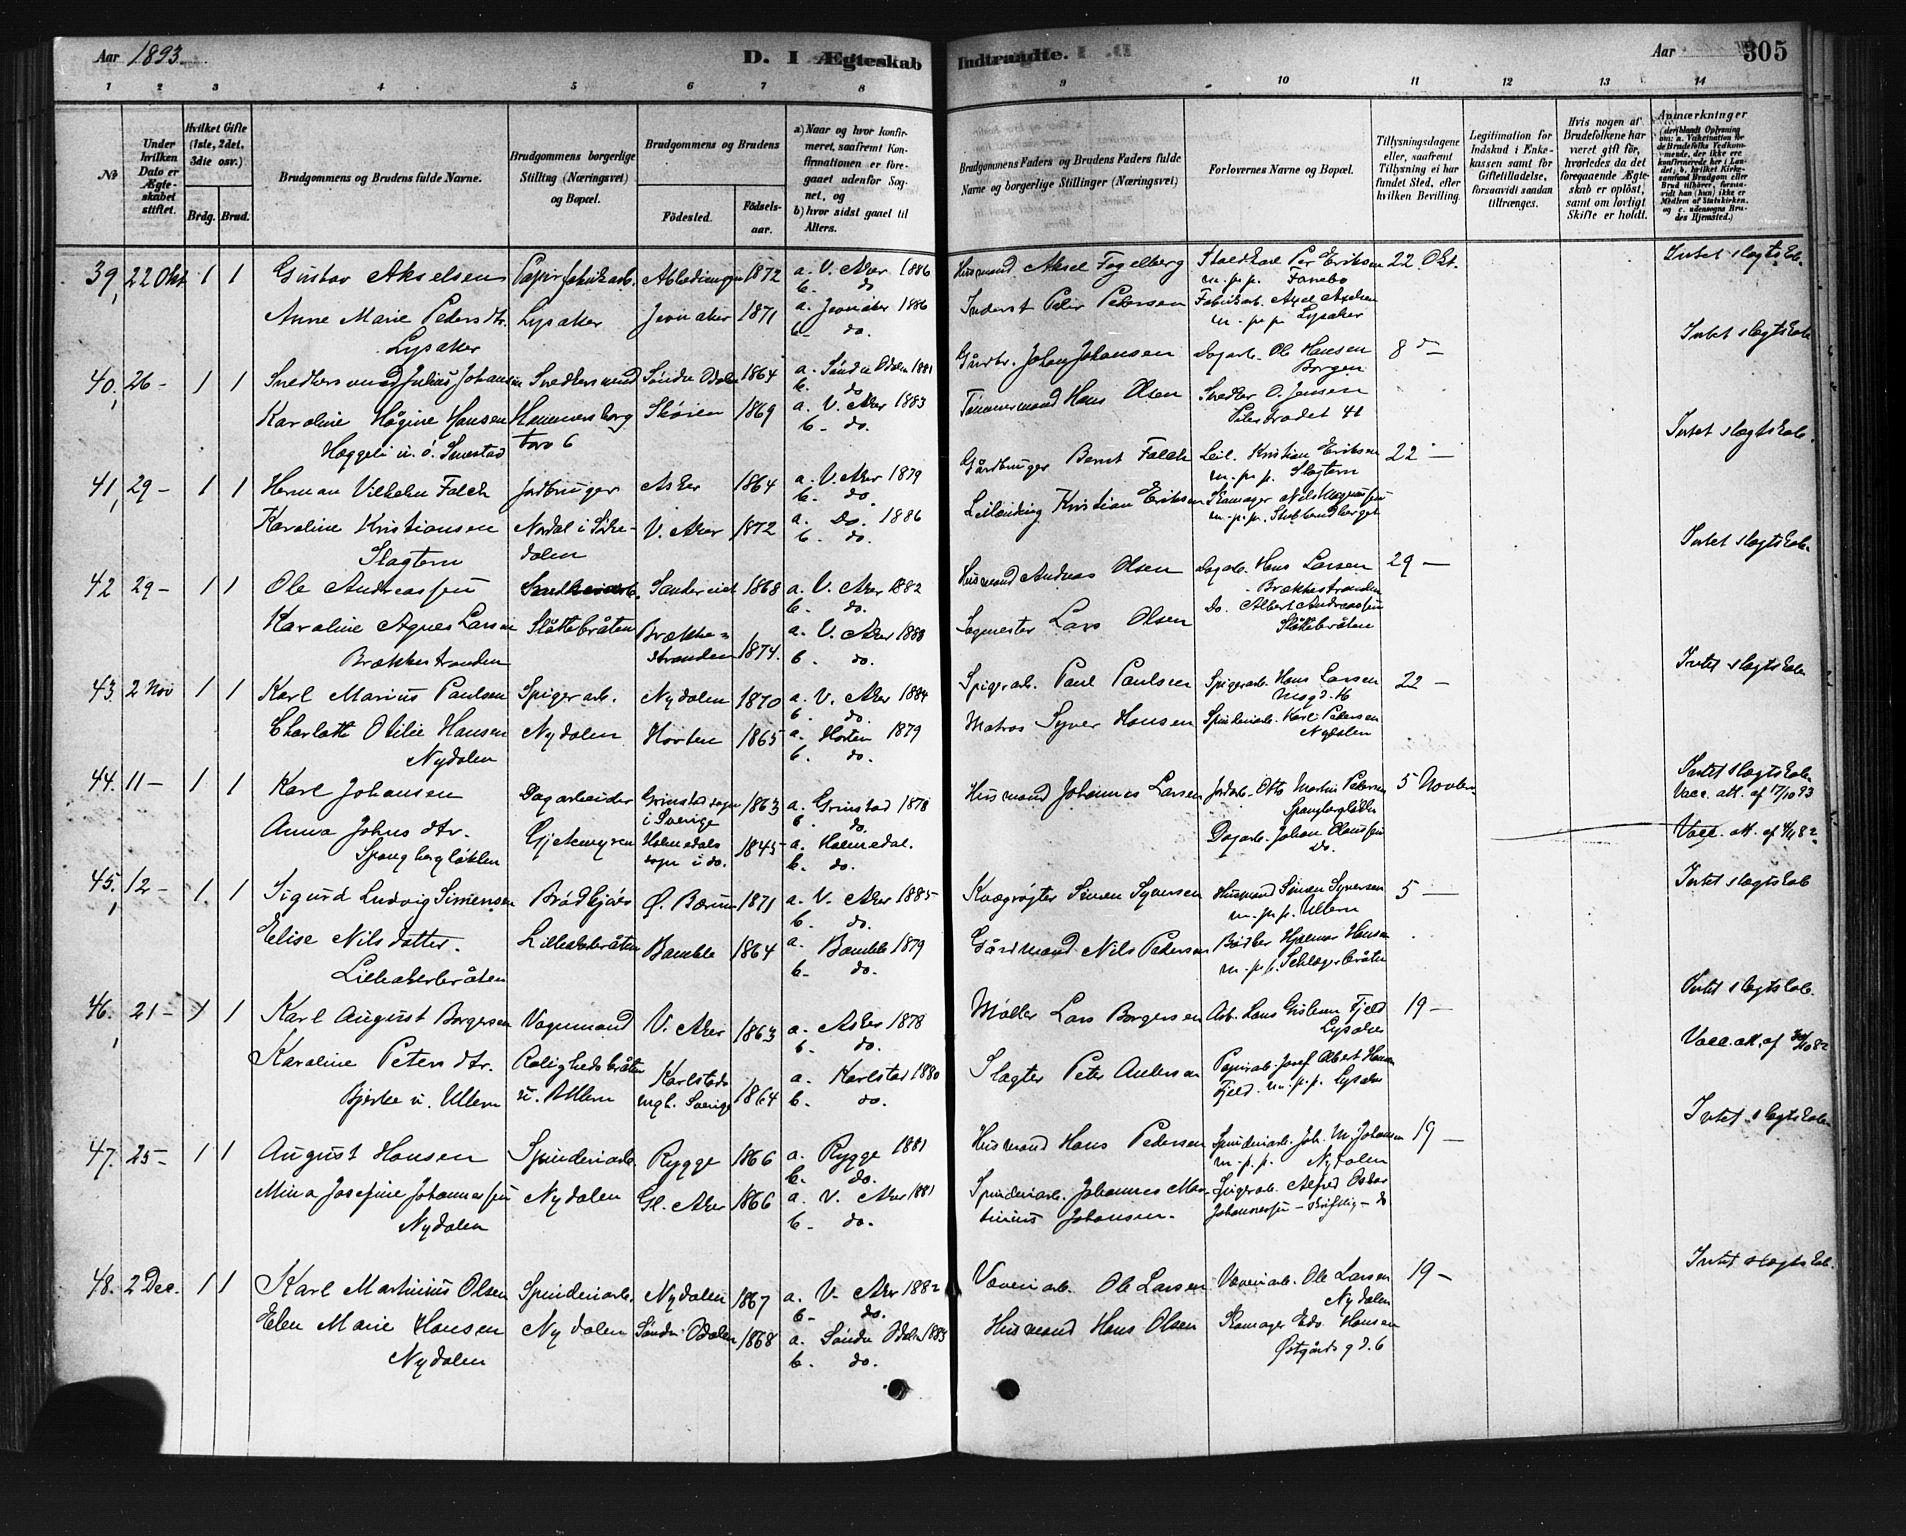 Aar 1893.
D. I Ægteskab Indtraadte.
Aar 305
1 2 3 4 5 6 7 8 9 10 11 12 13 14
No
Under hvilken Dato er Ægteskabet stiftet.
Hvilket Gifte (1ste, 2det, 3die osv.)
Brdg. Brud.
Brudgommens og Brudens fulde Navne.
Brudgommens borgerlige Stilling (Næringsvei) og Bopæl.
Brudgommens og Brudens
Fødested.
Fødselsaar.
a) Naar og hvor konfirmeret, saafremt Konfirmationen er foregaaet udenfor Sognet, og
b) hvor sidst gaaet til Alters.
Brudgommens Faders og Brudens Faders fulde Navne og borgerlige Stillinger (Næringsvei)
Forlovernes Navne og Bopæl.
Tillysningsdagene eller, saafremt Tillysning ei har fundet Sted, efter hvilken Bevilling.
Legitimation for Indskud i Enkekassen samt for Giftetilladelse, forsaavidt saadan tiltrænges.
Hvis nogen af Brudefolkene har været gift før, hvorledes da det foregaaende Ægteskab er opløst, samt om lovligt Skifte er holdt.
Anmærkninger
39, 22 Okt 1 1 Gustav Akselsen Papirfabrikarb. 1872 a. V. Aker 1886 Husmand Aksel Fogelberg Staldkarl Per Eriksen 22 Okt. Intet slægtskab.
b. do m. p. p. Fanebo
Anne Marie Pedersdtr. Lysaker Jevnaker 1871 a. Jevnaker 1886 Inderst Peder Pedersen Fabrikarb. Axel Axelsen
Lysaker b. do. m. p. p. Lysaker
40, 26 - 1 1 Snedkersvend Julius Johansen Snedkersvend Søndre Odalen 1864 a. Søndre Odalen 1881 Gårdbr. Johan Johansen Dagarb. Ole Hansen 8 d - Intet slægtskab
b. do Borgen
Karoline Hågine Hansen Hammersborg Skøien 1869 a. V. Aker 1883 Tømmermand Hans Olsen Snedker O. Jensen
Hæggeli u. ö. Smestad torv 6 b. do. Pilestrædet 41
41, 29 - 1 1 Herman Vilhelm Falch Jordbruger Asker 1864 a. V. Aker 1879 Gårdbruger Bernt Falch Leil. Kristian Eriksen 22 - Intet slægtskab.
b. do m. p. p. Slagtern
Karoline Kristiansen Nordal i Sörkedalen V. Aker 1872 a. Do. 1886 Leilænding Kristian Eriksen Skomager Nils Magnussen
Slagtern b. do. m. p. p. Stubberudberget
42 29 - 1 1 Ole Andreassen Sanderud 1868 a. V. Aker 1882 Husmand Andreas Olsen Dagarb. Hans Larsen 29 - Intet slægtskab
b. do. Brækkestranden
Karoline Agnes Larsen Slåttebråten Brækkestranden 1874. a. V. Aker 1888 Sagmester Lars Olsen Do. Albert Andreassen
Brækkestranden b. do. Slåttebråten
43. 2 Nov 1 1 Karl Marius Paulsen Spigerarb. Nydalen 1870 a. V. Aker 1884 Spigerarb. Paul Paulsen Spigerarb. Hans Larsen 22 - Intet slægtskab
b. do.
Charlotte Otilie Hansen Nydalen Horten 1865 a. Horten 1879 Matros Syver Hansen Spinderiarb. Karl Petersen
Nydalen b. do. Nydalen
44. 11 - 1 1 Karl Johansen Dagarbeider Grinstad sogn i Sverige 1863 a. Grinstad 1878 Husmand Johannes Larsen Jordarb. Otto Martin Petersen 5 Novbr. Intet slægtskab
b. do. Spangbergløkken Vacc. att. af 17/10 93
Anna Johnsdtr. Gjetemyren Holmedals sogn i do. 1845 a. Holmedal. Dagarb. Johan Olaussen Vacc. att. af 4/4 82
Spangbergløkken b. do. Do.
45, 12 - 1 1 Sigurd Ludvig Simensen Brødkjörer Ø. Bærum 1871 a. V. Aker 1885 Kvægrøgter Simen Syversen Husmand Simen Syversen 5 - Intet slægtskab
b. do m. p. p. Ullern
Elise Nilsdatter. Lilleakerbråten Bamble 1864 a. Bamble 1879 Gårdmand Nils Pedersen Hjalmar Hansen
Lilleakerbråten b. do. m. p. p. Schlagerbråten
46. 21 - 1 1 Karl August Borgersen Vognmand V. Aker 1863 a. Asker 1878 Møller Lars Borgersen Arb. Lars Gislesen Fjeld 19 - Intet slægtskab.
b. do. Lysaker
Karoline Petersdtr. Rolighedsbråten Karlstad 1864 a. Karlstad 1880 Slagter Peter Anderson Papirarb. Josef Albert Hansen Vacc. att. af 82
Bjerke u. Ullern u. Ullern Sverige b. do. Fjeld. m. p. p. Lysaker
47. 25 - 1 1 August Hansen Spinderiarb. Rygge 1866 a. Rygge 1881 Husmand Hans Pedersen Spinderiarb. Joh. M. Johansen 19 - Intet slægtskab
b. do. m. p. p. Nydalen
Mina Josefine Johannessen Nydalen Gl. Aker 1866 a. V. Aker 1881 Spinderiarb. Johannes Martinius Johansen. Spigerarb. Alfred Oskar
Nydalen b. do. Johannessen - skriftlig - do
48. 2 Dec. 1 1 Karl Martinius Olsen Spinderiarb. Nydalen 1867 a. V. Aker 1882 Væveriarb. Ole Larsen Væveriarb. Ole Larsen 19 - Intet slægtskab.
b. do. Nydalen
Elen Marie Hansen Nydalen Søndre Odalen 1868 a. Søndre Odalen 1883 Husmand Hans Olsen Skomager Edv. Hansen
Nydalen b. do. Østgårds gd. 6